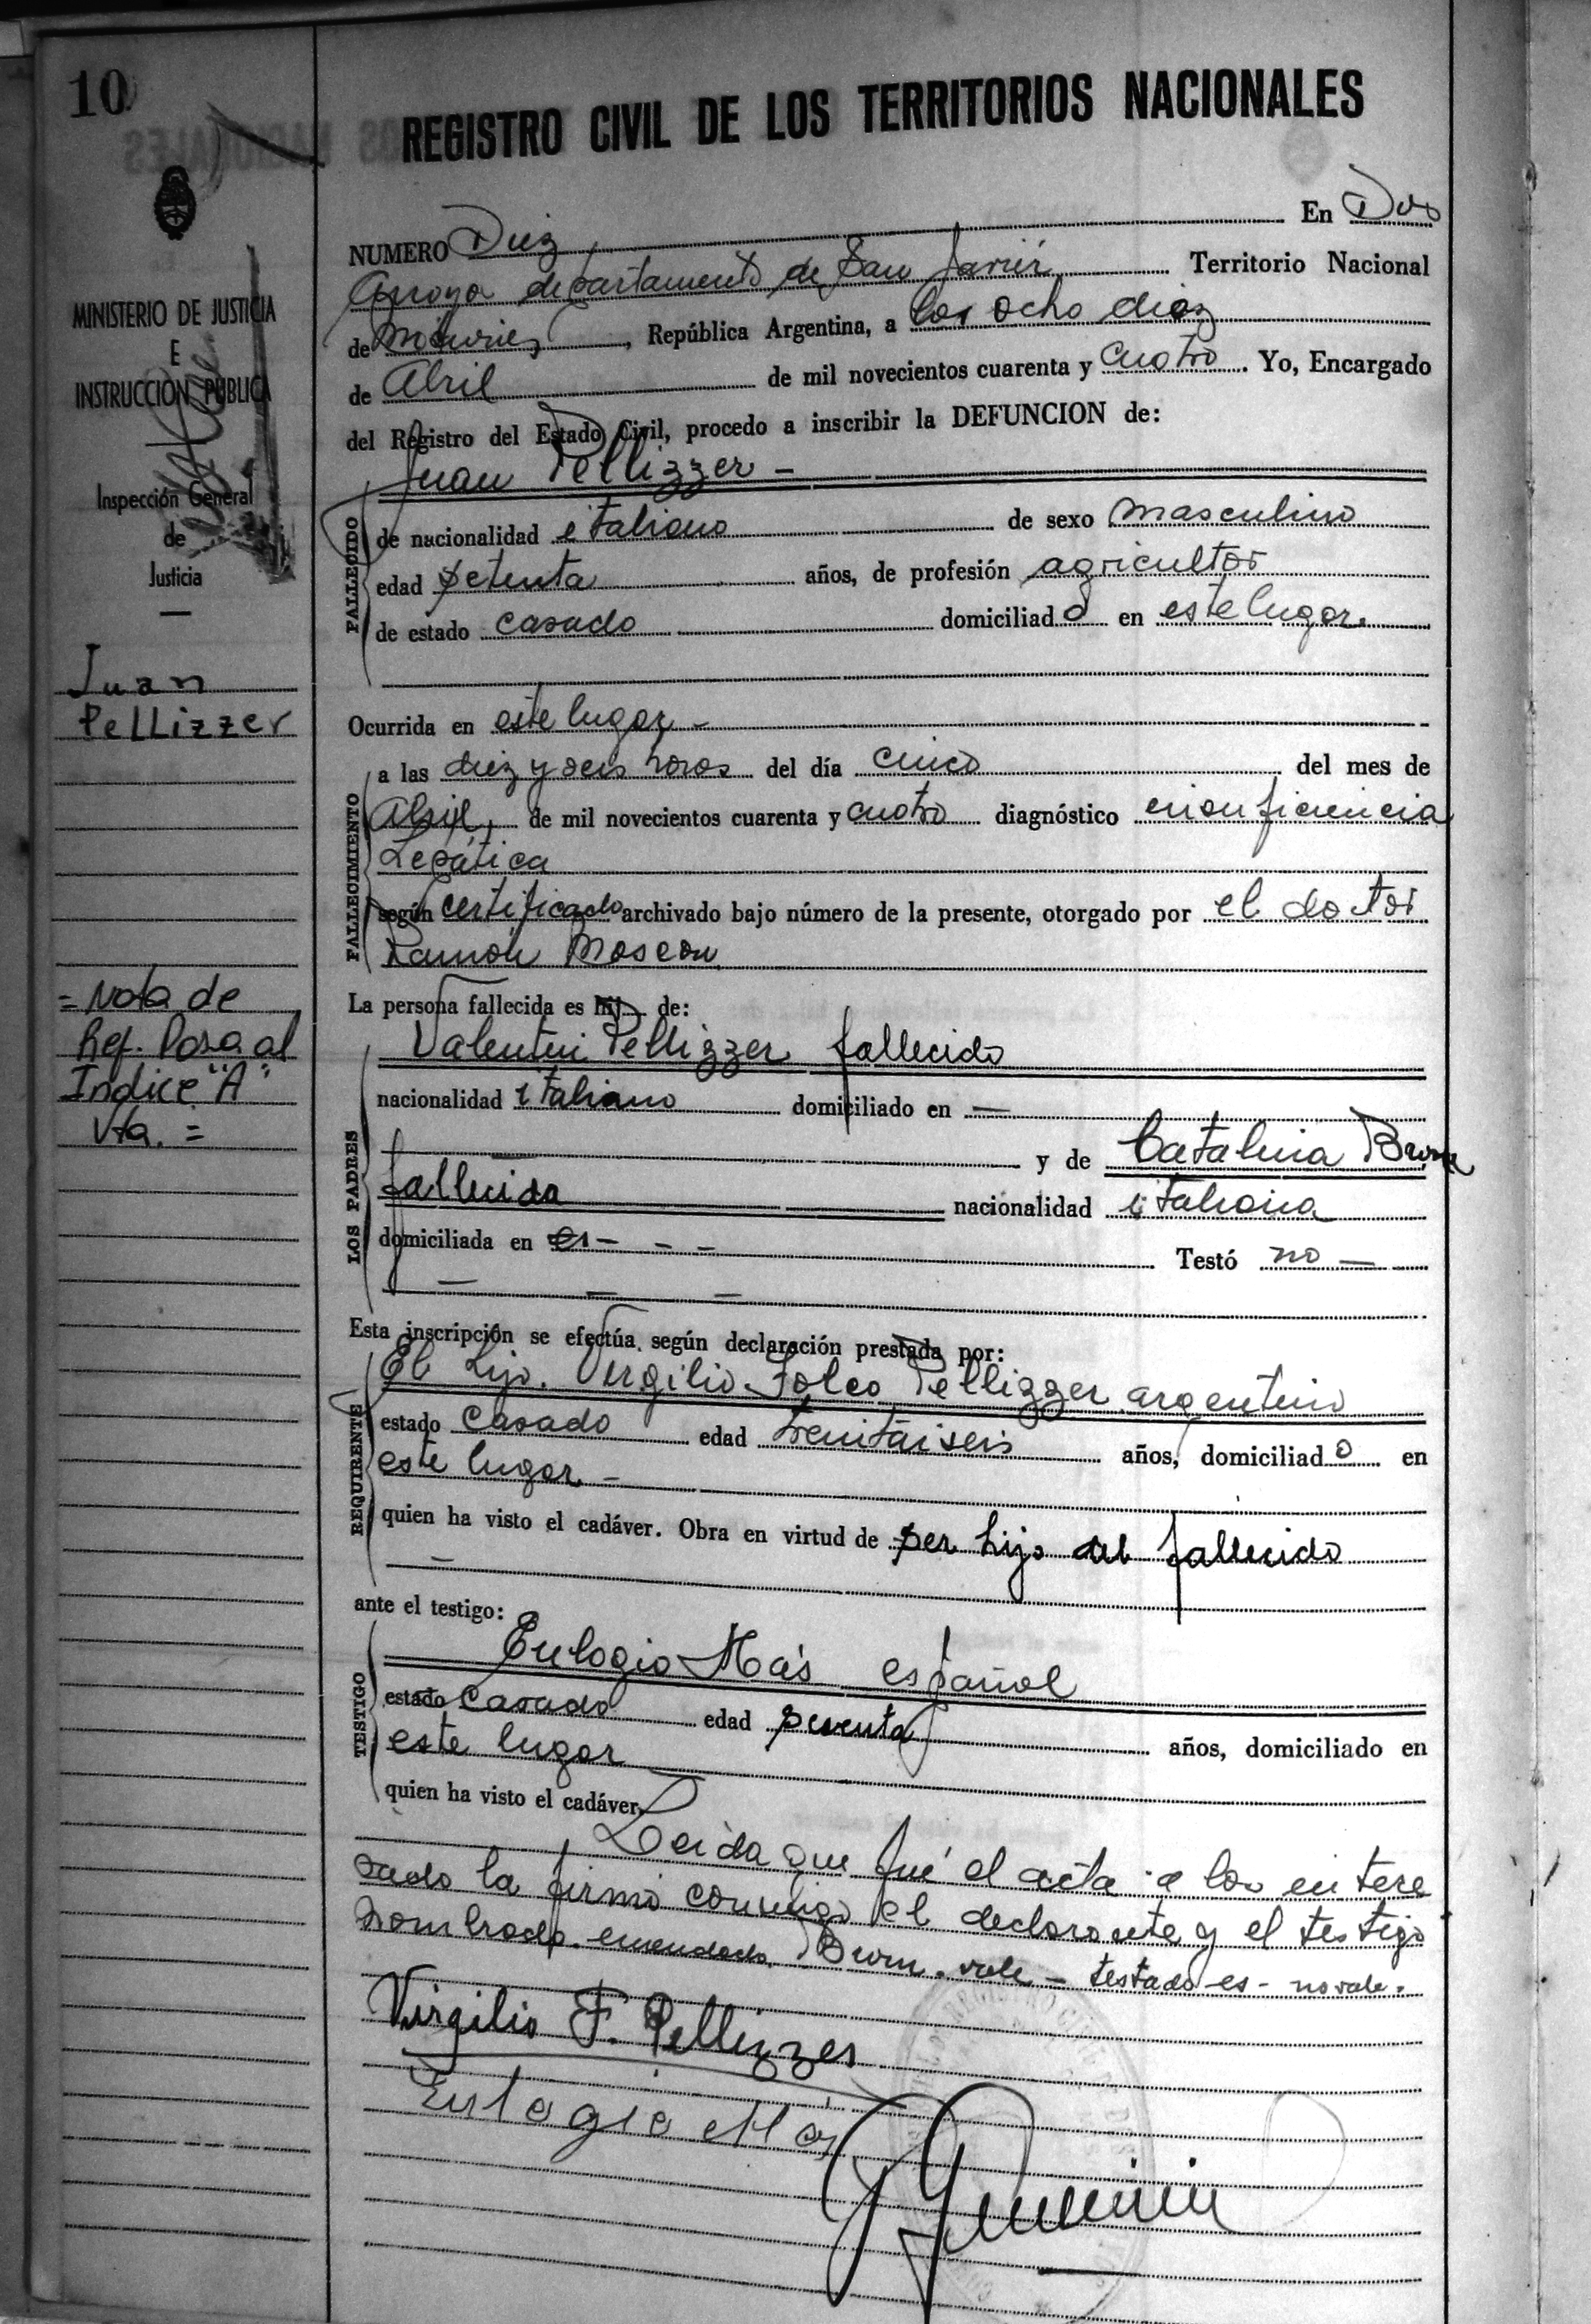 10
REGISTRO CIVIL DE LOS TERRITORIOS NACIONALES
MINISTERIO DE JUSTICIA
E
INSTRUCCIÓN PÚBLICA
Inspección General
de
Justicia
Juan
Pellizzer
= Nota de
Ref. Pasa al
Indice "A"
Vta. =
NUMERO Diez En Dos
Arroyos departamento de San Javier Territorio Nacional
de Misiones, República Argentina, a los ocho dias
de Abril de mil novecientos cuarenta y cuatro. Yo, Encargado
del Registro del Estado Civil, procedo a inscribir la DEFUNCION de:
Juan Pellizzer -
FALLECIDO
de nacionalidad italiano de sexo masculino
edad setenta años, de profesión agricultor
de estado casado domiciliado en este lugar.
Ocurrida en este lugar -
FALLECIMIENTO
a las diez y seis horas del día cinco del mes de
Abril, de mil novecientos cuarenta y cuatro diagnóstico insuficiencia
hepática
según certificado archivado bajo número de la presente, otorgado por el doctor
Ramón
La persona fallecida es hij de:
LOS PADRES
Valentin Pellizzer fallecido
nacionalidad italiano domiciliado en —
y de Catalina Brun
fallecida nacionalidad italiana
domiciliada en es - - - Testó no —
Esta inscripción se efectúa según declaración prestada por:
REQUIRENTE
El hijo. Virgilio Folco Pellizzer argentino
estado casado edad treintaiseis años, domiciliado en
este lugar. -
quien ha visto el cadáver. Obra en virtud de ser hijo del fallecido
ante el testigo:
TESTIGO
Eulogio Más español
estado casado edad sesenta años, domiciliado en
este lugar
quien ha visto el cadáver.
Leida que fué el acta a los intere
sado la firmó conmigo el declarante y el testigo
nombrado. emendado. Brun. vale - testado - es - no vale.
Virgilio F. Pellizzer
Eulogio Más